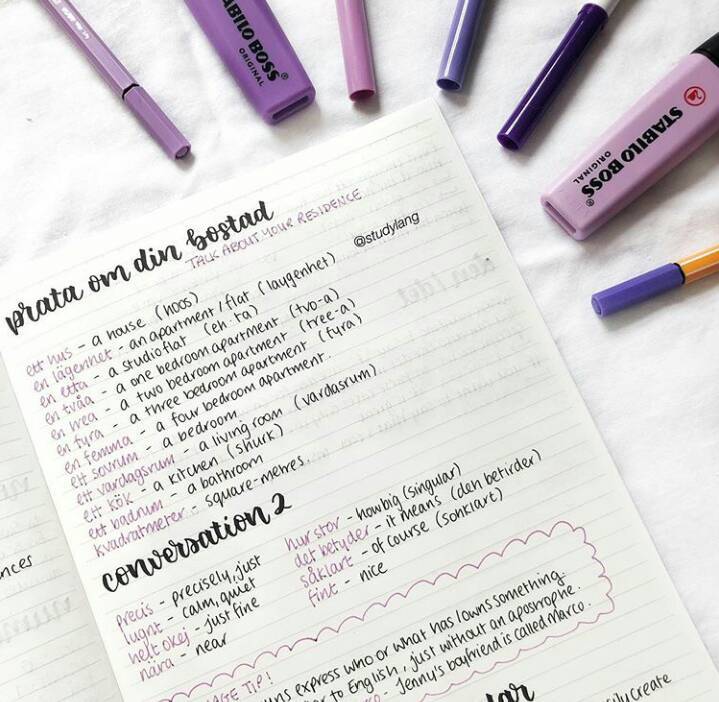 STABILO BOSS®
ORIGINAL
STABILO BOSS®
ORIGINAL
prata om din bostad
TALK ABOUT YOUR RESIDENCE
@studylang
ett hus - a house (hoos)
en lägenhet - an apartment/flat (laugenhet)
en etta - a studio flat (eh.ta)
en tvåa - a one bedroom apartment (tvo-a)
en trea - a two bedroom apartment (tree-a)
en fyra - a three bedroom apartment (fyra)
en femma - a four bedroom apartment.
ett sovrum - a bedroom
ett vardagsrum - a living room (vardasrum)
ett kök - a kitchen (shurk)
ett badrum - a bathroom
kvadratmeter - square-metres.
conversation 2
precis - precisely, just
lugnt - calm, quiet
helt okej - just fine
nära - near
hur stor - how big (singular)
det betyder - it means (den betirder)
såklart - of course (sohklart)
fint - nice
TIP!
express who or what has/owns something.
to English, just without an apostrophe.
- Jenny's boyfriend is called Marco.
create